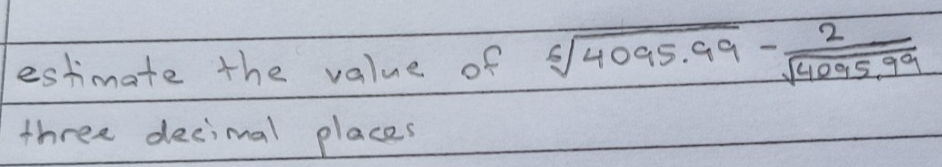 estimate the value of ⁶√4095.99 - 2/√4095.99
three decimal places